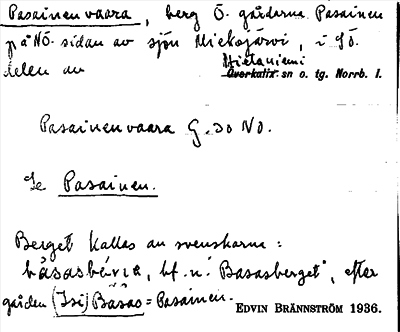 Pasainenvaara, berg Ö. gårdarna Pasainen
på NÖ. sidan av sjön Miekojärvi, i SÖ.
delen av Hietaniemi
Överkalix sn o. tg. Norrb. l.
Pasainenvaara G. 30 NO.
Se Pasainen.
Berget kallas av svenskarna:
båsasbärje, bf. n. "Basasberget", efter
gården (Isi) Båsas = Pasainen.
EDVIN BRÄNNSTRÖM 1936.